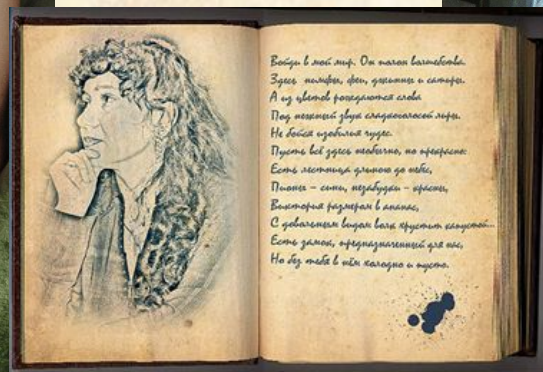 Войди в мой мир. Он полон волшебства.
Здесь нимфы, феи, джинны и сатиры.
А из цветов рождаются слова
Под нежный звук сладкоголосой лиры.
Не бойся изобилия чудес.
Пусть всё здесь необычно, но прекрасно:
Есть лестница длиною до небес,
Пионы – сини, незабудки – красны,
Виктория размером в ананас,
С довольным видом волк хрустит капустой...
Есть замок, предназначенный для нас,
Но без тебя в нём холодно и пусто.